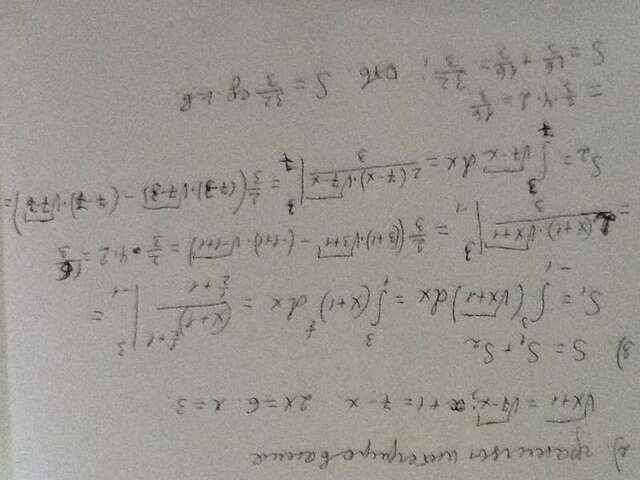 2) границы интегрирования
√x+1 = √7-x; x+1=7-x 2x=6 x=3.
3) S = S₁ + S₂
S₁ = ∫₋₁³ (√x+1)dx = ∫₋₁³ (x+1)^½ dx = (x+1)^(½+1) / (½+1) |₋₁³ =
= 2(x+1)·√x+1 / 3 |₋₁³ = 2/3 ((3+1)·√3+1 - (-1+1)·√-1+1) = 2/3 · 4·2 = 16/3
S₂ = ∫₃⁷ √7-x dx = 2(7-x)·√7-x / 3 |₃⁷ = 2/3 ((7-3)·√7-3 - (7-7)·√7-7) =
= 2/3 · 4·2 = 16/3
S = 16/3 + 16/3 = 32/3; Отв. S = 32/3 ед кв